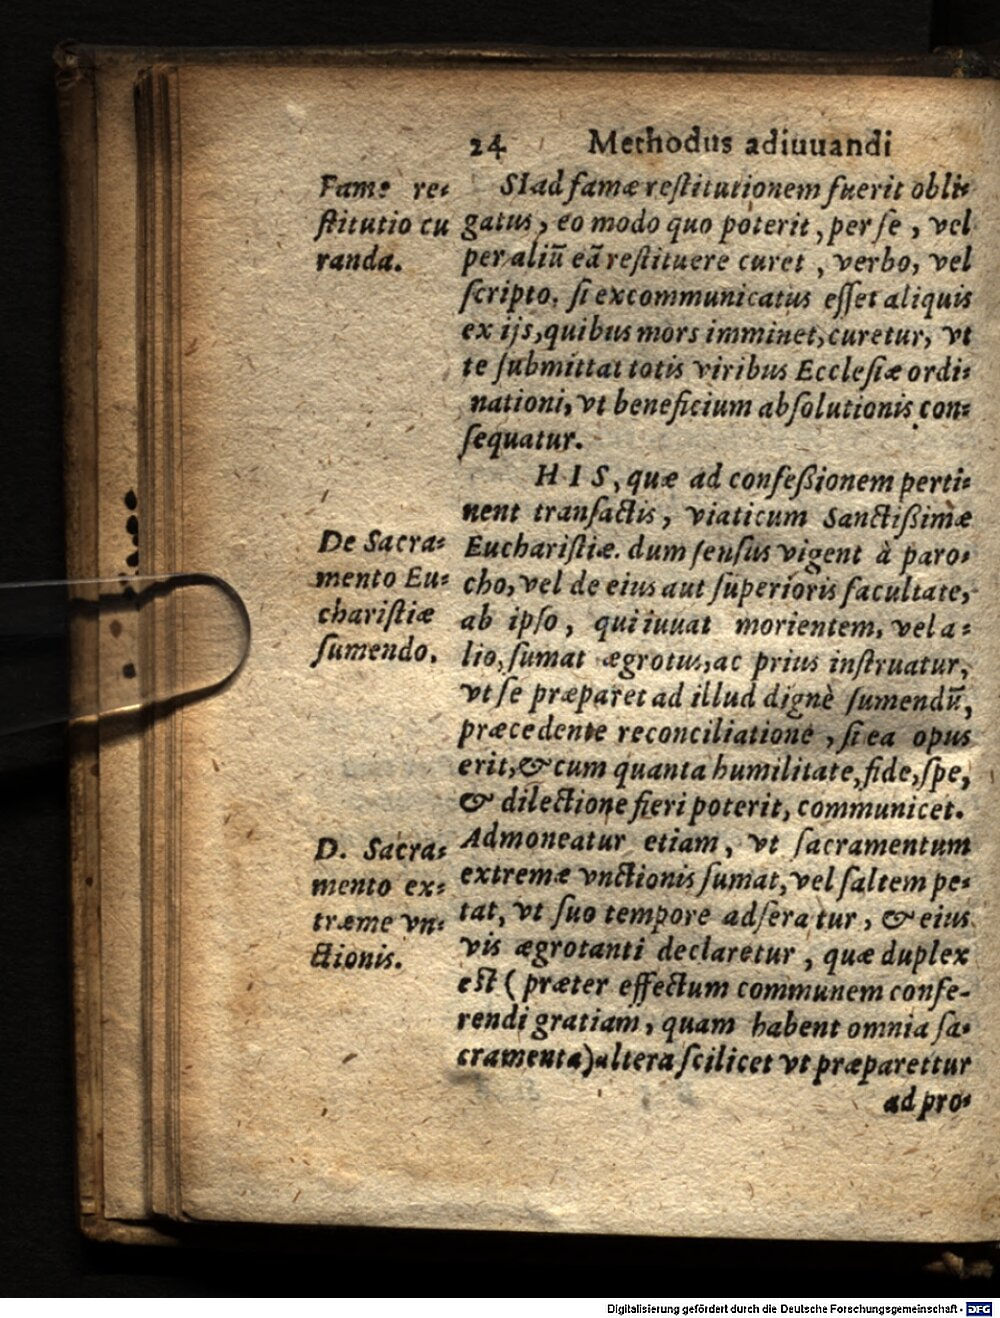 24 Methodus adiuuandi
Famę re⸗
ſtitutio cu
randa.
SI ad famæ reſtitutionem fuerit obli⸗
gatus, eo modo quo poterit, per ſe, vel
per aliū eā reſtituere curet, verbo, vel
ſcripto. ſi excommunicatus eſſet aliquis
ex ijs, quibus mors imminet, curetur, vt
te ſubmittat totis viribus Eccleſiæ ordi⸗
nationi, vt beneficium abſolutionis con⸗
ſequatur.
HIS, quæ ad confeßionem perti⸗
nent tranſactis, viaticum Sanctißimæ
Euchariſtiæ. dum ſenſus vigent à paro⸗
cho, vel de eius aut ſuperioris facultate,
ab ipſo, qui iuuat morientem, vel a⸗
lio, ſumat ægrotus, ac prius inſtruatur,
vt ſe præparet ad illud dignè ſumendū,
præcedente reconciliatione, ſi ea opus
erit, & cum quanta humilitate, fide, ſpe,
& dilectione fieri poterit, communicet.
De Sacra⸗
mento Eu⸗
chariſtiæ
ſumendo.
Admoneatur etiam, vt ſacramentum
extremæ vnctionis ſumat, vel ſaltem pe⸗
tat, vt ſuo tempore adſeratur, & eius
vis ægrotanti declaretur, quæ duplex
eſt (præter effectum communem confe-
rendi gratiam, quam habent omnia ſa⸗
cramenta) altera ſcilicet vt præparettur
D. Sacra⸗
mento ex⸗
træme vn⸗
ctionis.
ad pro⸗
Digitalisierung gefördert durch die Deutsche Forschungsgemeinschaft - DFG